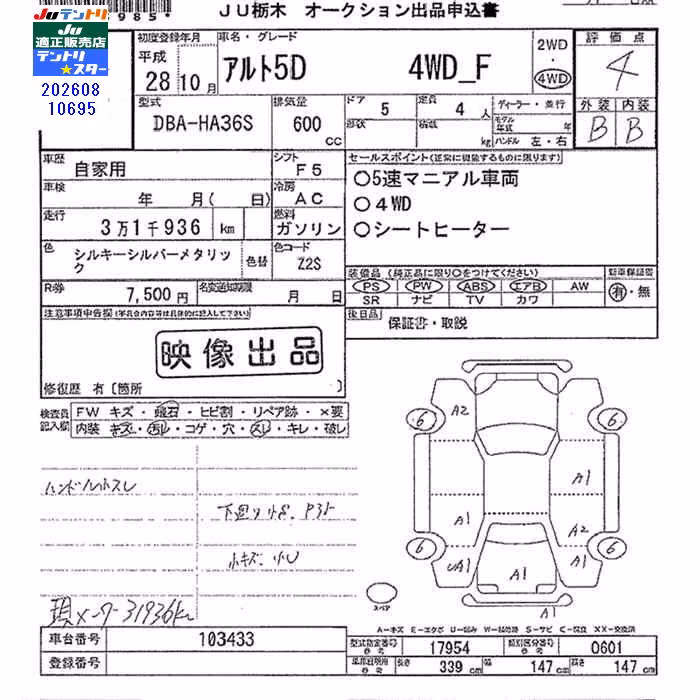 JU栃木 オークション出品申込書
JUテントリ
JU
適正販売店
テントリ
★スター
202608
10695
初度登録年月 車名・グレード 2WD 評価点
平成 28 10月 アルト5D 4WD_F 4WD 4
型式 排気量 ドア 5 定員 4人 ディーラー・並行 外装 内装
DBA-HA36S 600 cc 積載 kg モデル年式 年 B B
ハンドル 左・右
車歴 自家用 シフト F5 セールスポイント(正常に機能するものに限ります)
車検 年 月(日) 冷房 AC ○5速マニアル車両
走行 3万1千936 km 燃料 ガソリン ○4WD
○シートヒーター
色 シルキーシルバーメタリック 色替 色コード Z2S
装備品(純正品に限り○をつけてください) 新車保証書
R券 7,500円 名変通知期限 月 日 PS PW ABS エアB AW 有・無
SR ナビ TV カワ
注意事項申告欄(不具合内容等は具体的に記入して下さい) 後日品 保証書・取説
映像出品
修復歴 有〔箇所 〕
検査員記入欄 FW キズ・飛石・ヒビ割・リペア跡・×要
内装 キズ・汚レ・コゲ・穴・スレ・キレ・破レ
ハンドルスレ
小キズ
A2
6 6
A1
A1 A2
6 6
A1 A1
A1
A1
スペア
A-キズ E-エクボ U-凹み W-補修跡 S-サビ C-腐食 XX-交換済
車台番号 103433 型式指定番号 17954 類別区分番号 0601
登録番号 長さ 339 cm 幅 147 cm 高さ 147 cm